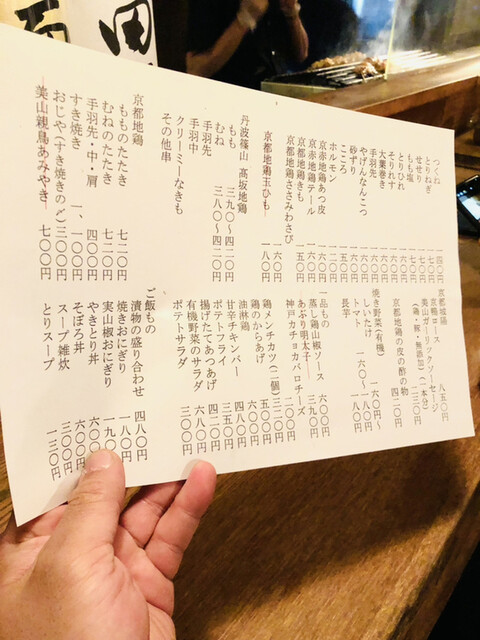 つくね 一四〇円
とりねぎ
せせり
もも塩
とりひれ
そりれす
大葉巻き
手羽先
やげんなんこつ
砂ずり
こころ
ホルモン
京赤地鶏あつ皮
京赤地鶏テール
京都地鶏きも 一五〇円
京都地鶏ささみわさび 一六〇円
京都地鶏玉ひも 一八〇円
丹波篠山 高坂地鶏
もも 三九〇〜四二〇円
むね 三八〇〜四二〇円
手羽先
手羽中
クリーミーなきも
その他串
京都地鶏
もものたたき 七二〇円
むねのたたき 七二〇円
手羽先・中・肩 四〇〇円
すき焼き 一、一〇〇円
おじや(すき焼きのご 三〇〇円
美山親鳥あみやき 七〇〇円
京都城陽
京鴨ロース 八五〇円
美山ガーリックソーセージ
(鶏・豚・無添加)(一本分) 二三〇円
京都地鶏の皮の酢の物 四二〇円
焼き野菜(有機) 一六〇円〜
しいたけ 一八〇円
トマト 一六〇〜一八〇円
長芋
一品もの
蒸し鶏山椒ソース 六〇〇円
あぶり明太子 三九〇円
神戸カチョカバロチーズ
鶏メンチカツ(二個) 三二〇円
鶏のからあげ 五〇〇円
油淋鶏 六〇〇円
甘辛チキンバー 四八〇円
ポテトフライ 三五〇円
揚げたてあつあげ 四二〇円
有機野菜のサラダ 六八〇円
ポテトサラダ 三〇〇円
ご飯もの
漬物の盛り合わせ 四八〇円
焼きおにぎり 一八〇円
実山椒おにぎり 一九〇
やきとり丼 六〇〇
そぼろ丼 六〇〇円
スープ雑炊 三〇〇円
とりスープ 一三〇円